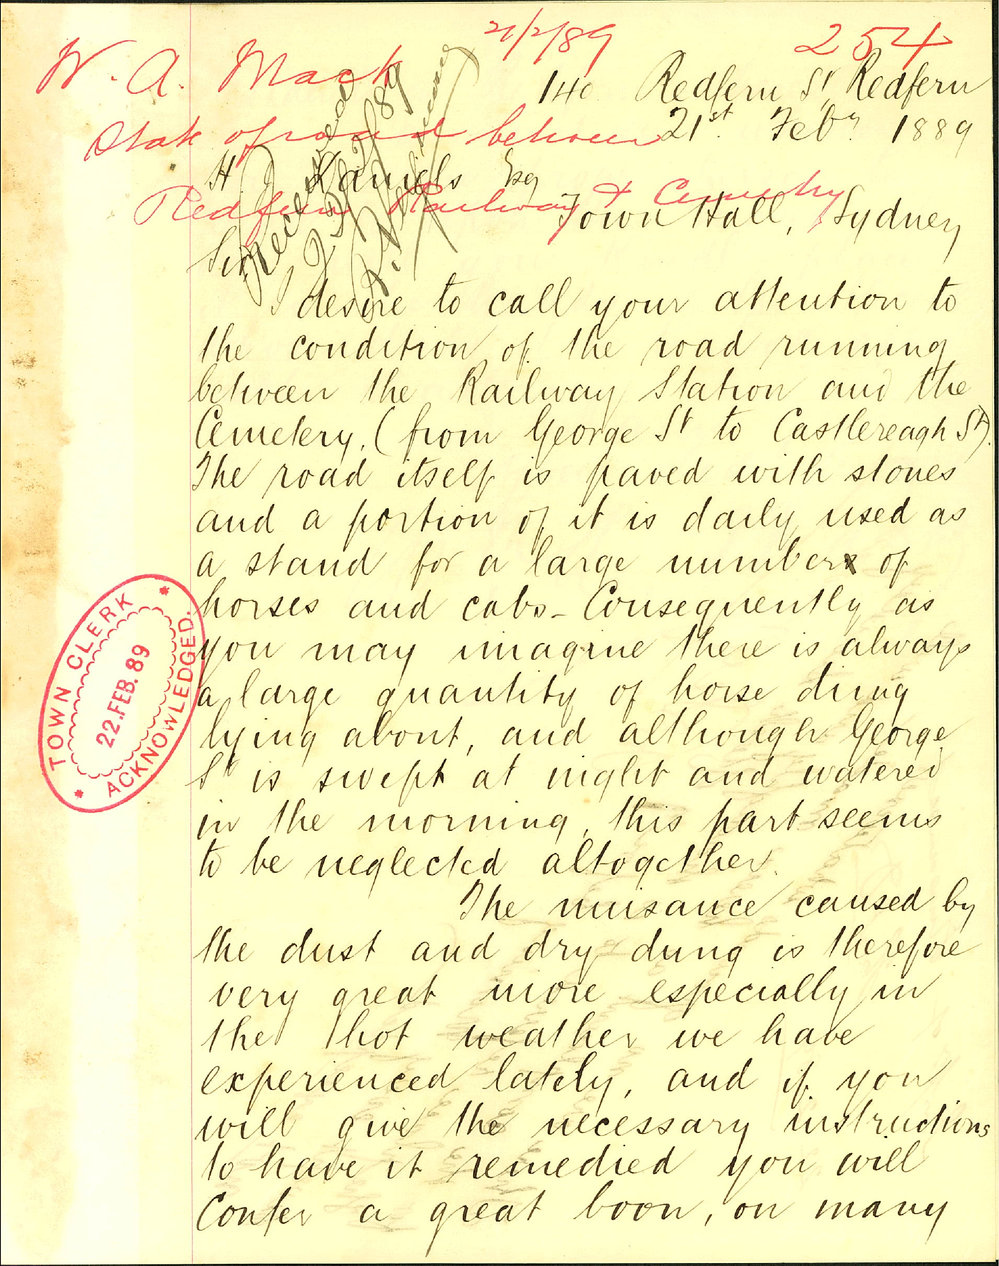 21/2/89
254
W. A. Mack
140 Redfern St Redfern
State of road between
21st Feby 1889
H Daniels Esq
Redfern Railway & Cemetry
Town Hall, Sydney
Received
22/2/89
Sir
I desire to call your attention to
the condition of the road running
between the Railway Station and the
Cemetery, (from George St to Castlereagh St).
The road itself is paved with stones
and a portion of it is daily used as
a stand for a large number of
horses and cabs - Consequently as
you may imagine there is always
a large quantity of horse dung
lying about, and although George
St is swept at night and watered
in the morning, this part seems
to be neglected altogether.
The nuisance caused by
the dust and dry dung is therefore
very great more especially in
the hot weather we have
experienced lately, and if you
will give the necessary instructions
to have it remedied you will
Confer a great boon, on many
TOWN CLERK
22.FEB.89
ACKNOWLEDGED.